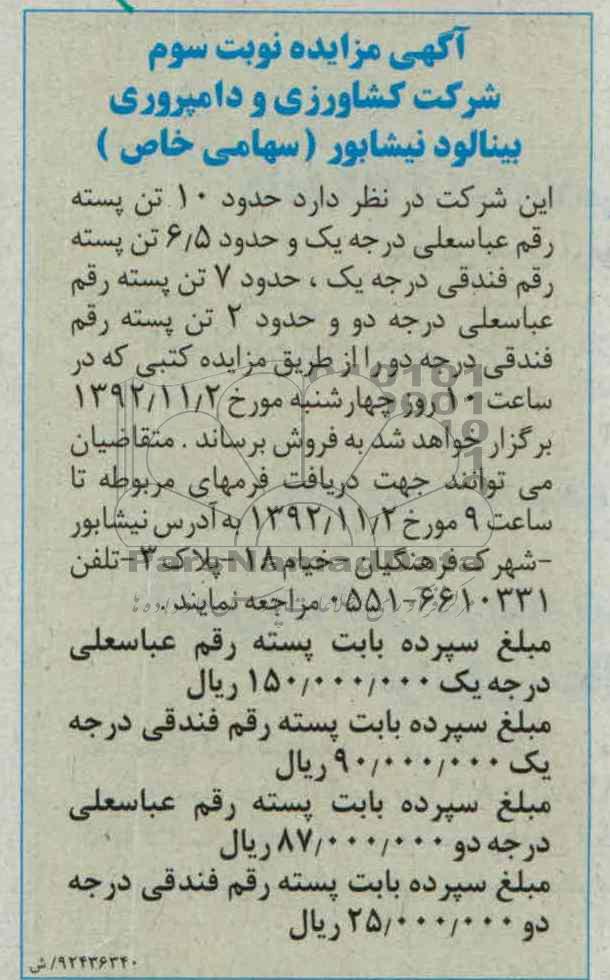 آگهی مزایده نوبت سوم
شرکت کشاورزی و دامپروری
بینالود نیشابور (سهامی خاص )
این شرکت در نظر دارد حدود ۱۰ تن پسته
رقم عباسعلی درجه یک و حدود ۶٫۵ تن پسته
رقم فندقی درجه یک ، حدود ۷ تن پسته رقم
عباسعلی درجه دو و حدود ۲ تن پسته رقم
فندقی درجه دو را از طریق مزایده کتبی که در
ساعت ۱۰ روز چهارشنبه مورخ ۱۳۹۲/۱۱/۲
برگزار خواهد شد به فروش برساند . متقاضیان
می توانند جهت دریافت فرمهای مربوطه تا
ساعت ۹ مورخ ۱۳۹۲/۱۱/۲ به آدرس نیشابور
-شهرک فرهنگیان -خیام ۱۸ -پلاک ۳-تلفن
۰۵۵۱-۶۶۱۰۳۳۱ مراجعه نمایند .
مبلغ سپرده بابت پسته رقم عباسعلی
درجه یک ۱۵۰/۰۰۰/۰۰۰ ریال
مبلغ سپرده بابت پسته رقم فندقی درجه
یک ۹۰/۰۰۰/۰۰۰ ریال
مبلغ سپرده بابت پسته رقم عباسعلی
درجه دو ۸۷/۰۰۰/۰۰۰ ریال
مبلغ سپرده بابت پسته رقم فندقی درجه
دو ۲۵/۰۰۰/۰۰۰ ریال
۹۲۴۳۶۳۴۰/ش